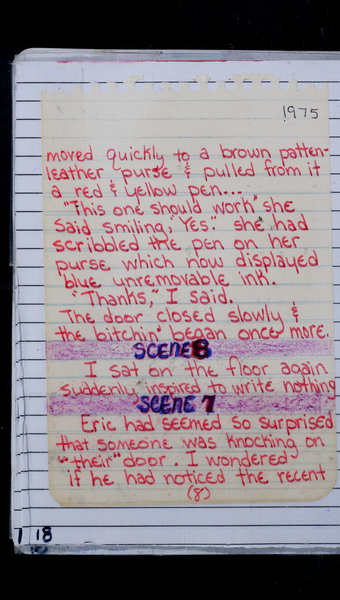 1975
moved quickly to a brown patten-
leather purse & pulled from it
a red & yellow pen...
"This one should work" she
said smiling, "Yes." she had
scribbled the pen on her
purse which now displayed
blue unremovable ink.
"Thanks," I said.
The door closed slowly &
the bitchin' began once more.
SCENE 6
I sat on the floor again
suddenly inspired to write nothing
SCENE 7
Eric had seemed so surprised
that someone was knocking on
"their" door. I wondered
if he had noticed the recent
(8)
18